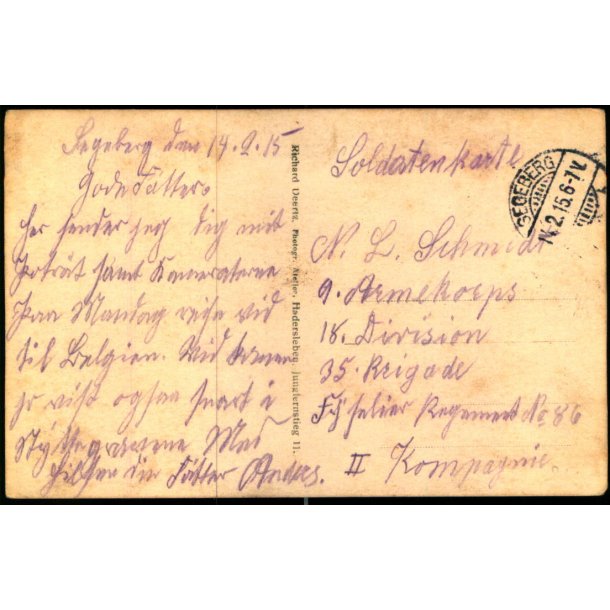 Segeberg den 14.2.15
Gode Fætter.
Her sender jeg dig mit
Porträt samt Kameraterne
Paa Mandag rejse vi
til Belgien. Vi kommer
jo vist ogsaa snart i
Skyttegravene Med
Hilsen din Fætter Anders.
Richard Deertz, Photogr. Atelier, Hadersleben, Jungfernstieg 11.
Soldatenkarte
SEGEBERG
2.15.6-7V
N. L. Schmidt
9. Armekorps
18. Division
35. Brigade
Füselier Regement No 86
II Kompagnie.